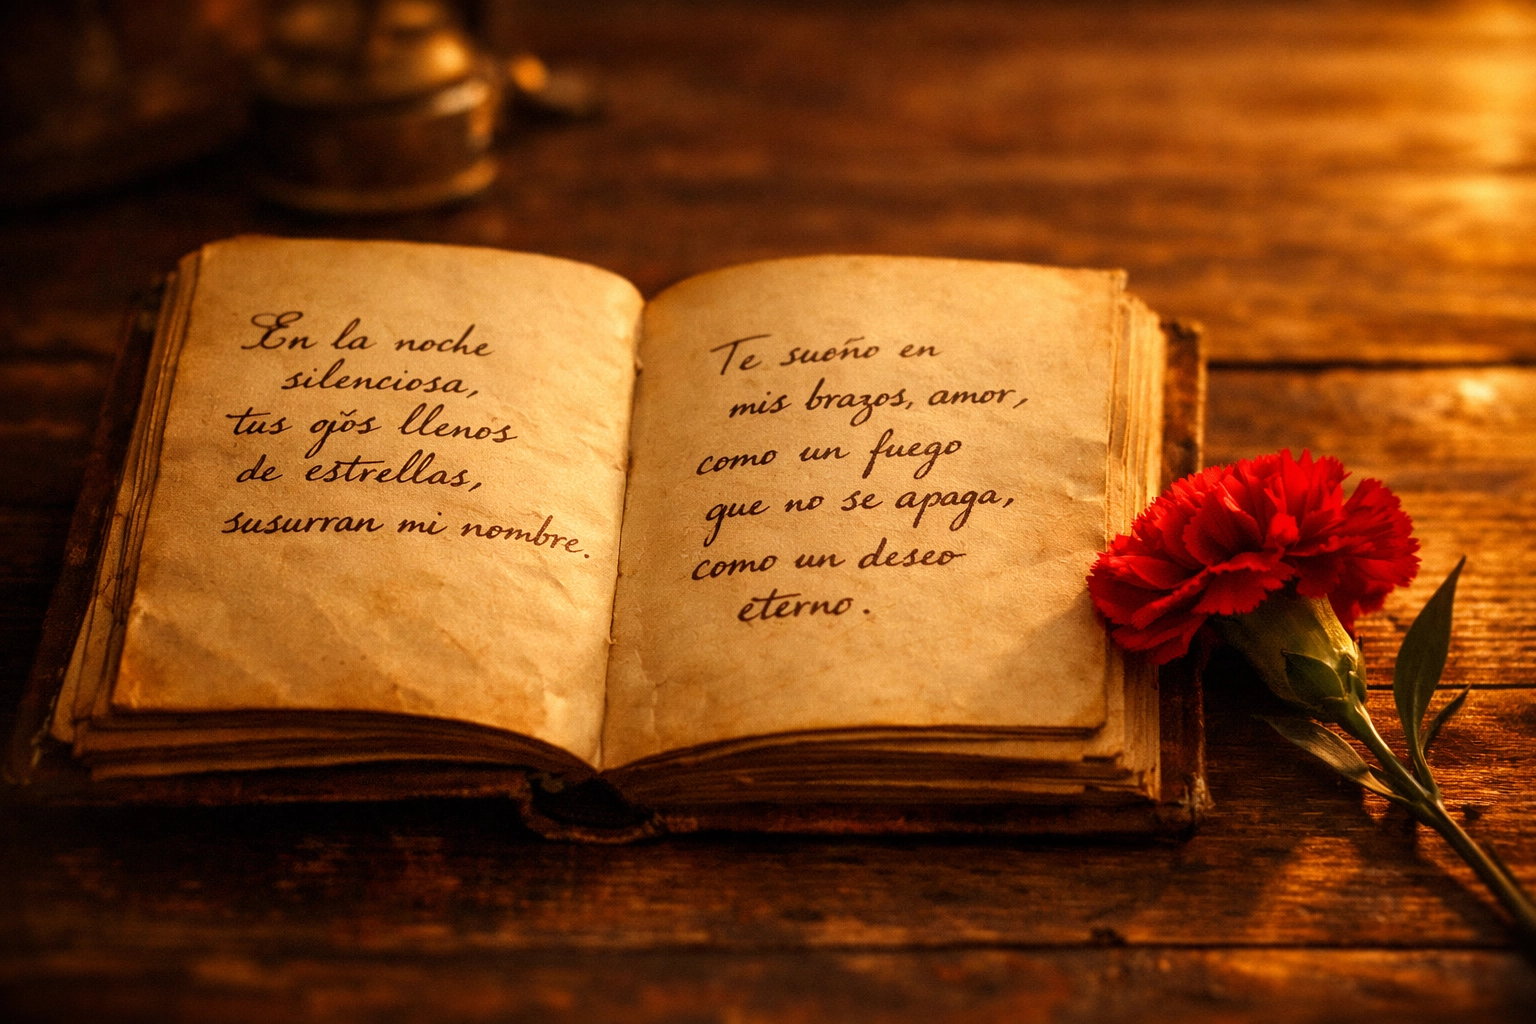 En la noche
silenciosa,
tus ojos llenos
de estrellas,
susurran mi nombre.
Te sueño en
mis brazos, amor,
como un fuego
que no se apaga,
como un deseo
eterno.